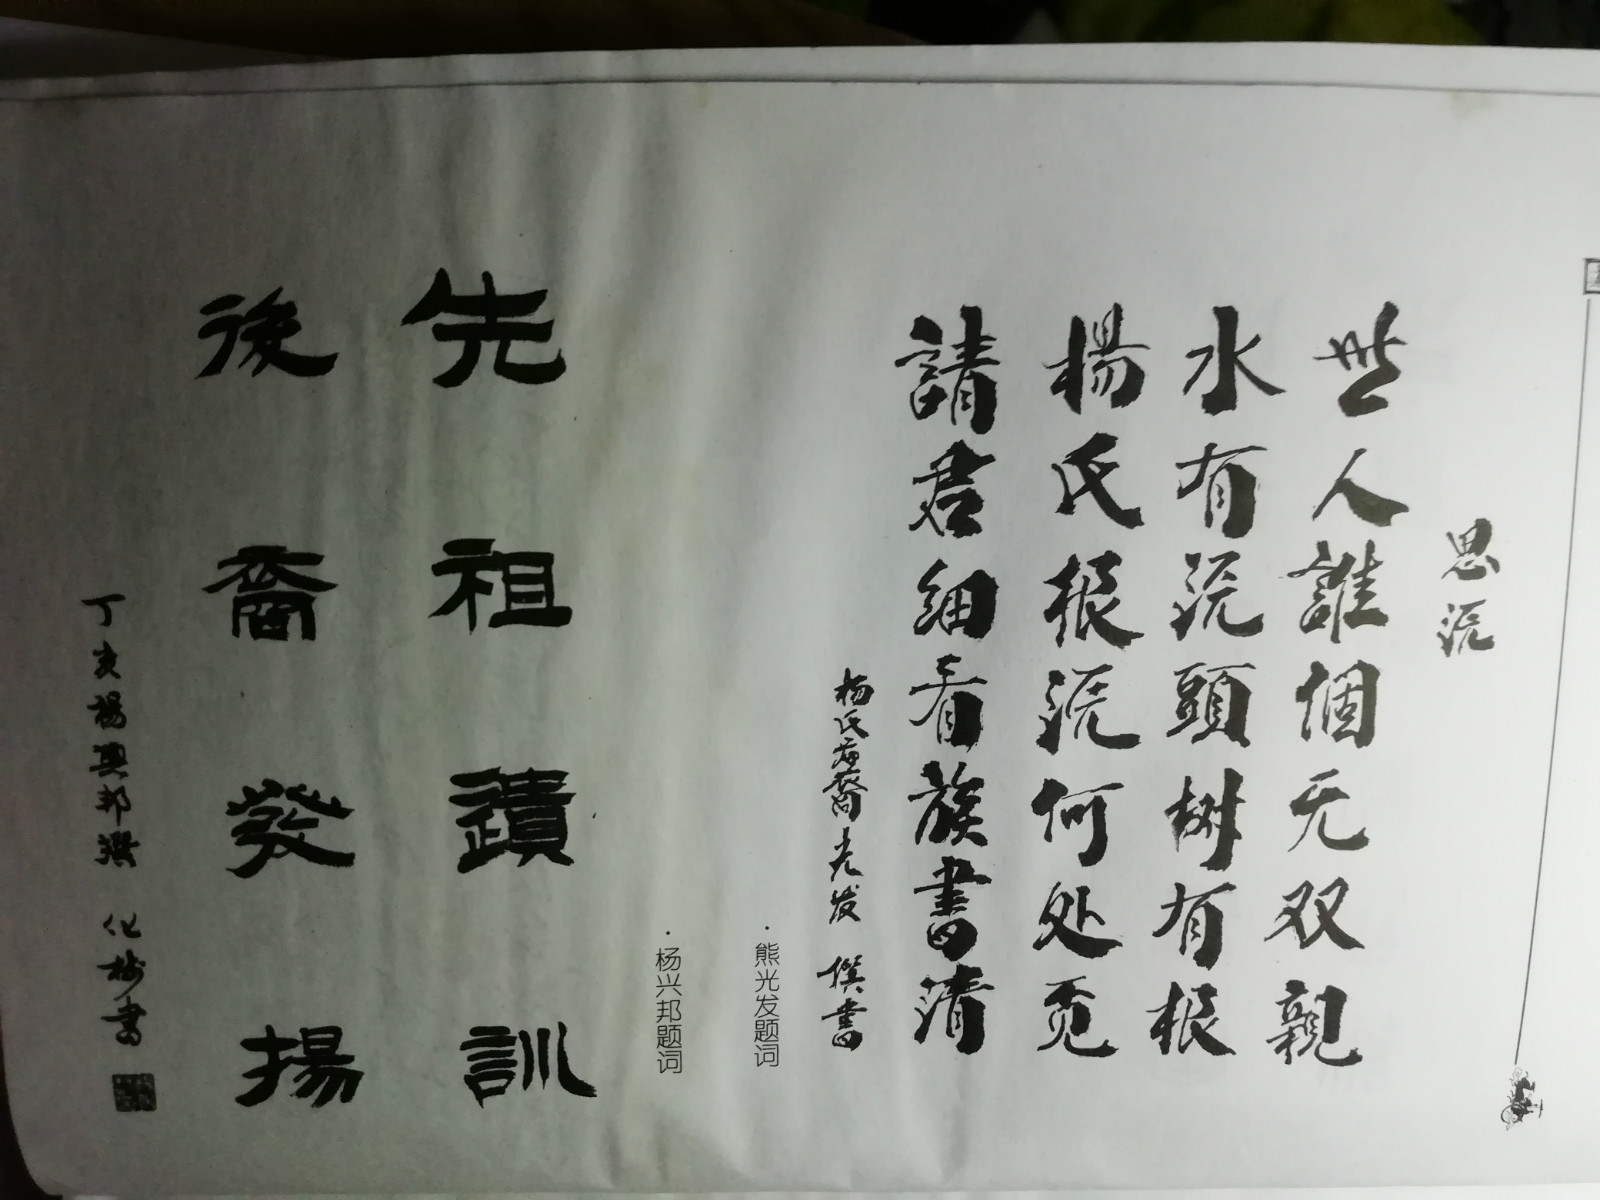 思源
世人誰個无双親
水有源頭树有根
楊氏根源何处觅
請君细看族書清
杨氏后裔光发 撰書
·熊光发题词
·杨兴邦题词
先祖蹟訓
後裔發揚
丁亥楊興邦撰 化樹書